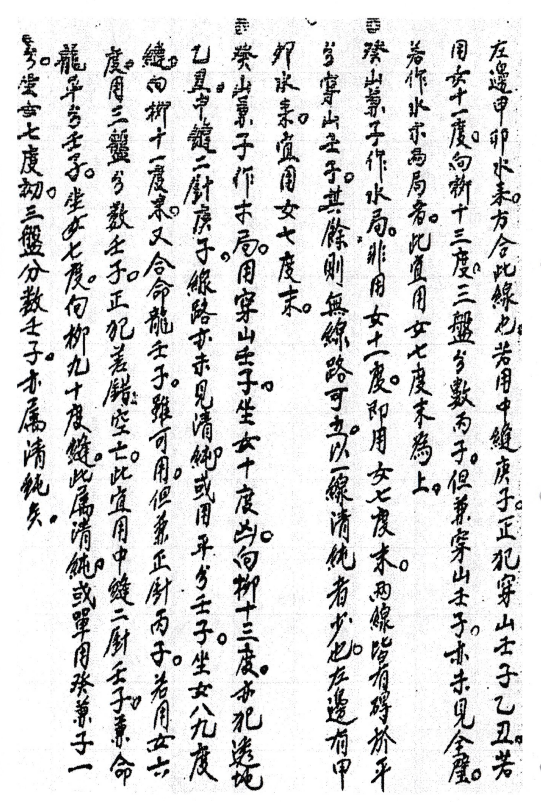 左邊甲卯水来。方合此線也。若用中縫庚子。正犯穿山壬子乙丑。若
用女十一度。向柳十三度。三盤分数丙子。但兼穿山壬子。亦未見全璧。
若作水木兩局者。此宜用女七度末為上。
癸山兼子作水局。非用女十一度。即用女七度末。兩線皆有碍於平
分穿山壬子。其餘則無線路可立。以一線清純者少也。左邊有甲
卯水来。宜用女七度末。
癸山兼子作木局。用穿山壬子。坐女十度凶。向柳十三度。亦犯透地
乙丑。中縫二針庚子。線路亦未見清純。或用平分壬子。坐女八九度
縫。向柳十一度末。又合命龍壬子。雖可用。但兼正針丙子。若用女六
度。用三盤分数壬子。正犯差錯空亡。此宜用中縫二針壬子。兼命
龍平分壬子。坐女七度。向柳九十度縫。此属清純。或單用癸兼子一
分。坐女七度初。三盤分数壬子。亦属清純矣。